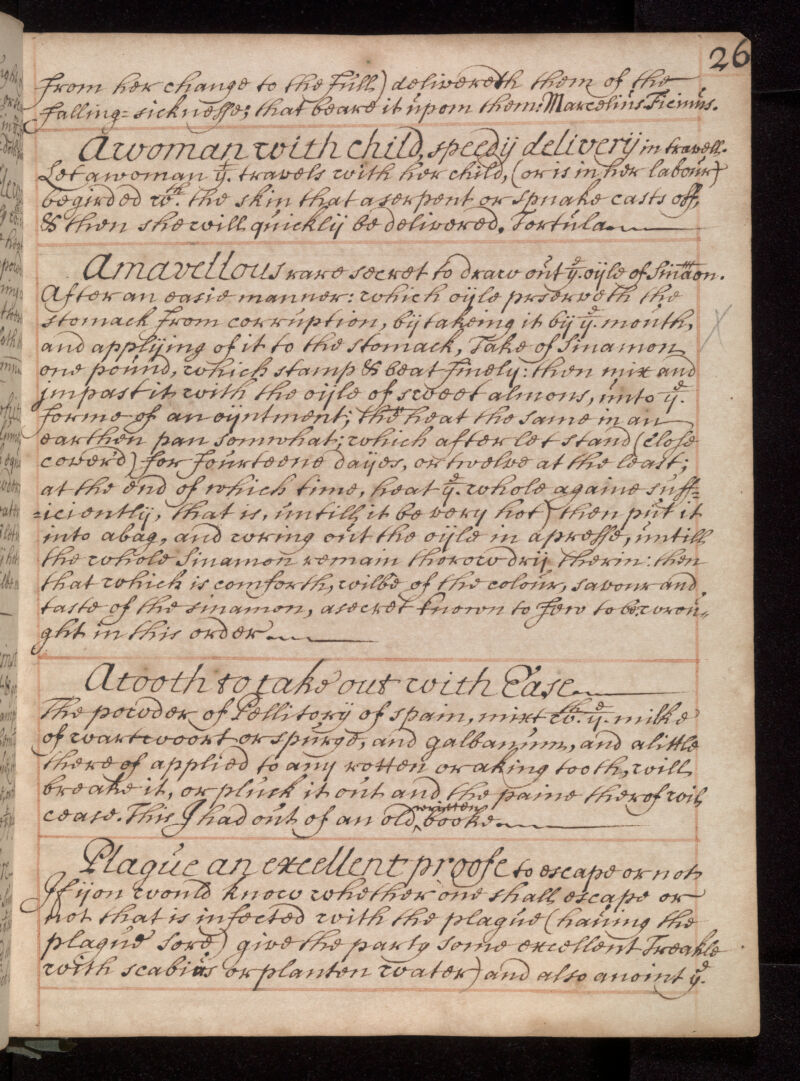 26
from her change to the Full) delivereth them of the
falling=sicknesse; that beare it upom them: Marcelius Ficinus.
A woman with child, speedy delivery in travell.
Let a woman yt. travels with her child, (or is in her labour)
begirded wth. the skin that a serpent or snake casts off,
& then she will quickly be delivered. Tortula
A mavellous rare secret to draw out ye. oyle of Sinamon.
After an easie manner: which oyle prserveth the
stomack from corruption, by takeing it by ye. mouth,
and applying of it to the stomack, Take of Sinamon
one pound, which stamp & beat finely: then mix and
impast it with the oyle of sweet almons, unto ye.
forme of an oyntment; then heat the same in an
earthen pan somwhat; which after let stand (close
cover'd) for fourteene dayes, or twelve at the least;
at the end of which time, heat ye. whole againe suff=
=iciently, that is, untill it be very hot) then put it
into a bag, and wring out the oyle in a presse, untill
the whole Sinamon remain thorow dry therin: then
that which is comforth, wilbe of the colour, savour and
taste of the sinamon, a secret known to few to be wrou=
ght in this order
A tooth to take out with Ease
The powder of Pellitory of spain, mixt wth. ye. milke
of wartwoort or spurge, and galbanum, and a little
there of applied to any rotten or aking tooth, will
breake it, or pluck it out and the paine therof wil
cease. This I had out of an old written booke
Plague an excellent proofe to escape or not
If you would know whether one shall escape or
not that is infected with the plague (having the
plague sore) give the party some excellent Treakle
with scabius or planten water) and also anoint ye.